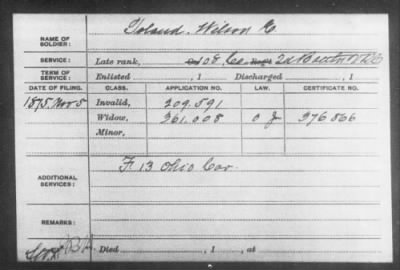 NAME OF SOLDIER: Toland, Wilson G.
SERVICE: Late rank, Co. E, 2d Battn V.R.C.
TERM OF SERVICE: Enlisted , 1 Discharged , 1
DATE OF FILING. CLASS. APPLICATION NO. LAW. CERTIFICATE NO.
1875. Nov 5 Invalid, 209.591
Widow, 361.008 O J 376 566
Minor,
ADDITIONAL SERVICES: F. 13 Ohio Cav.
REMARKS:
Died , 1 , at